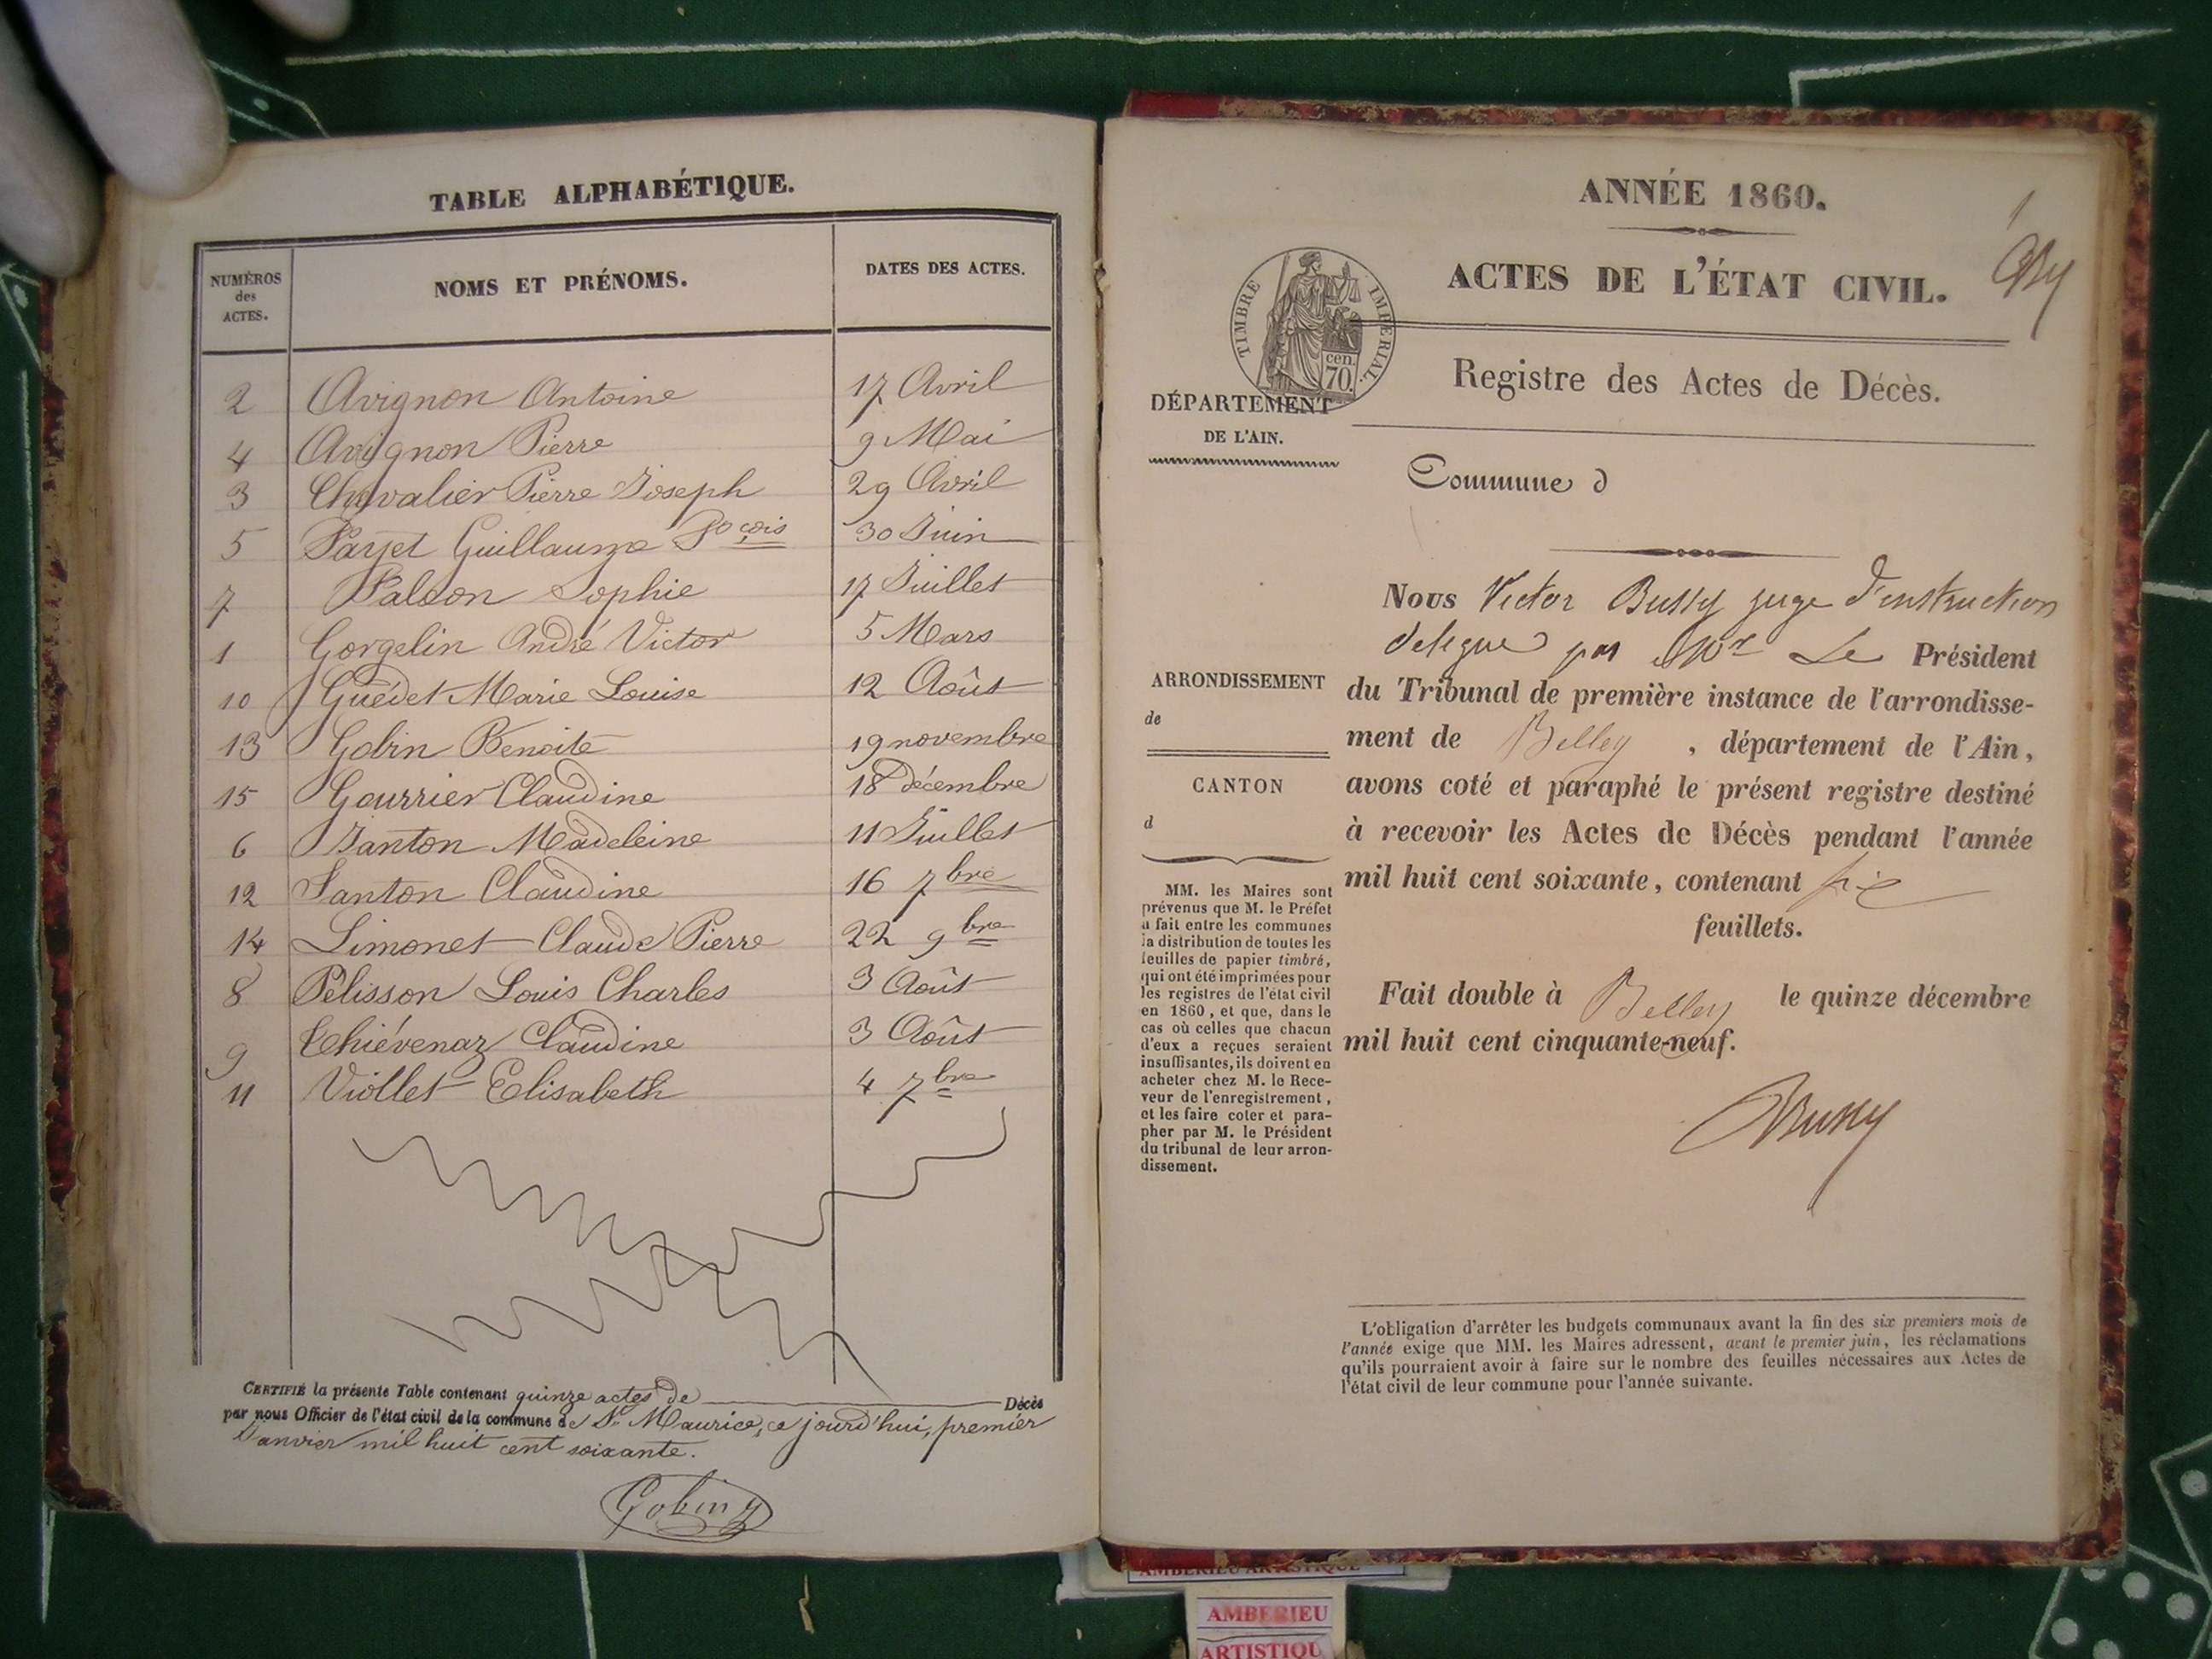 TABLE ALPHABÉTIQUE.
NUMÉROS des ACTES. NOMS ET PRÉNOMS. DATES DES ACTES.
2 Avignon Antoine 17 Avril
4 Avignon Pierre 9 Mai
3 Chevalier Pierre Joseph 29 Avril
5 Guillaume 30 Juin
7 Sophie 17 Juillet
1 Gorgelin André Victor 5 Mars
10 Guédet Marie Louise 12 Août
13 Gobin Benoite 19 novembre
15 Gourrier Claudine 18 décembre
6 Janton Madeleine 11 Juillet
12 Janton Claudine 16 7bre
14 Limonet Claude Pierre 22 9bre
8 Pélisson Louis Charles 3 Août
9 Thiévenaz Claudine 3 Août
11 Viollet Elisabeth 4 7bre
CERTIFIÉ la présente Table contenant quinze actes de Décès
par nous Officier de l'état civil de la commune de St Maurice, ce jourd'hui, premier
Janvier mil huit cent soixante.
Gobin
ANNÉE 1860.
1
ACTES DE L'ÉTAT CIVIL.
TIMBRE IMPÉRIAL.
cen.
70
Registre des Actes de Décès.
DÉPARTEMENT
DE L'AIN.
Commune d
Nous Victor Bussy juge d'instruction
delegue par Mr Le Président
ARRONDISSEMENT
de
CANTON
d
du Tribunal de première instance de l'arrondisse-
ment de Belley , département de l'Ain,
avons coté et paraphé le présent registre destiné
à recevoir les Actes de Décès pendant l'année
mil huit cent soixante, contenant
feuillets.
Fait double à Belley le quinze décembre
mil huit cent cinquante-neuf.
Bussy
MM. les Maires sont
prévenus que M. le Préfet
a fait entre les communes
la distribution de toutes les
feuilles de papier timbré,
qui ont été imprimées pour
les registres de l'état civil
en 1860, et que, dans le
cas où celles que chacun
d'eux a reçues seraient
insuffisantes, ils doivent en
acheter chez M. le Rece-
veur de l'enregistrement,
et les faire coter et para-
pher par M. le Président
du tribunal de leur arron-
dissement.
L'obligation d'arrêter les budgets communaux avant la fin des six premiers mois de
l'année exige que MM. les Maires adressent, avant le premier juin, les réclamations
qu'ils pourraient avoir à faire sur le nombre des feuilles nécessaires aux Actes de
l'état civil de leur commune pour l'année suivante.
AMBERIEU ARTISTIQUE
AMBERIEU
ARTISTIQU